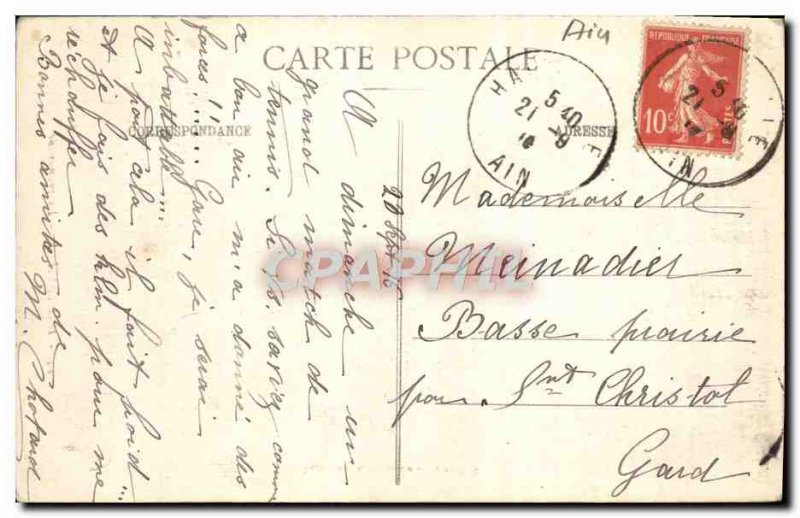 Ain
CARTE POSTALE
CORRESPONDANCE
ADRESSE
REPUBLIQUE FRANÇAISE
10c
POSTES
5 40
21 -9
AIN
5 40
21 -9
CPAPHIL
20 Sept 16
A dimanche un
grand match de
tennis. Si vs. saviez comme
le bon air m'a donné des
forces !!..... Gare, je serai
imbattable....
A part cela il fait froid...
et je fais des kilm. pour me
réchauffer
Bonnes amitiés de
M. Chotard
Mademoiselle
Meinadier
Basse prairie
par Snt Christol
Gard